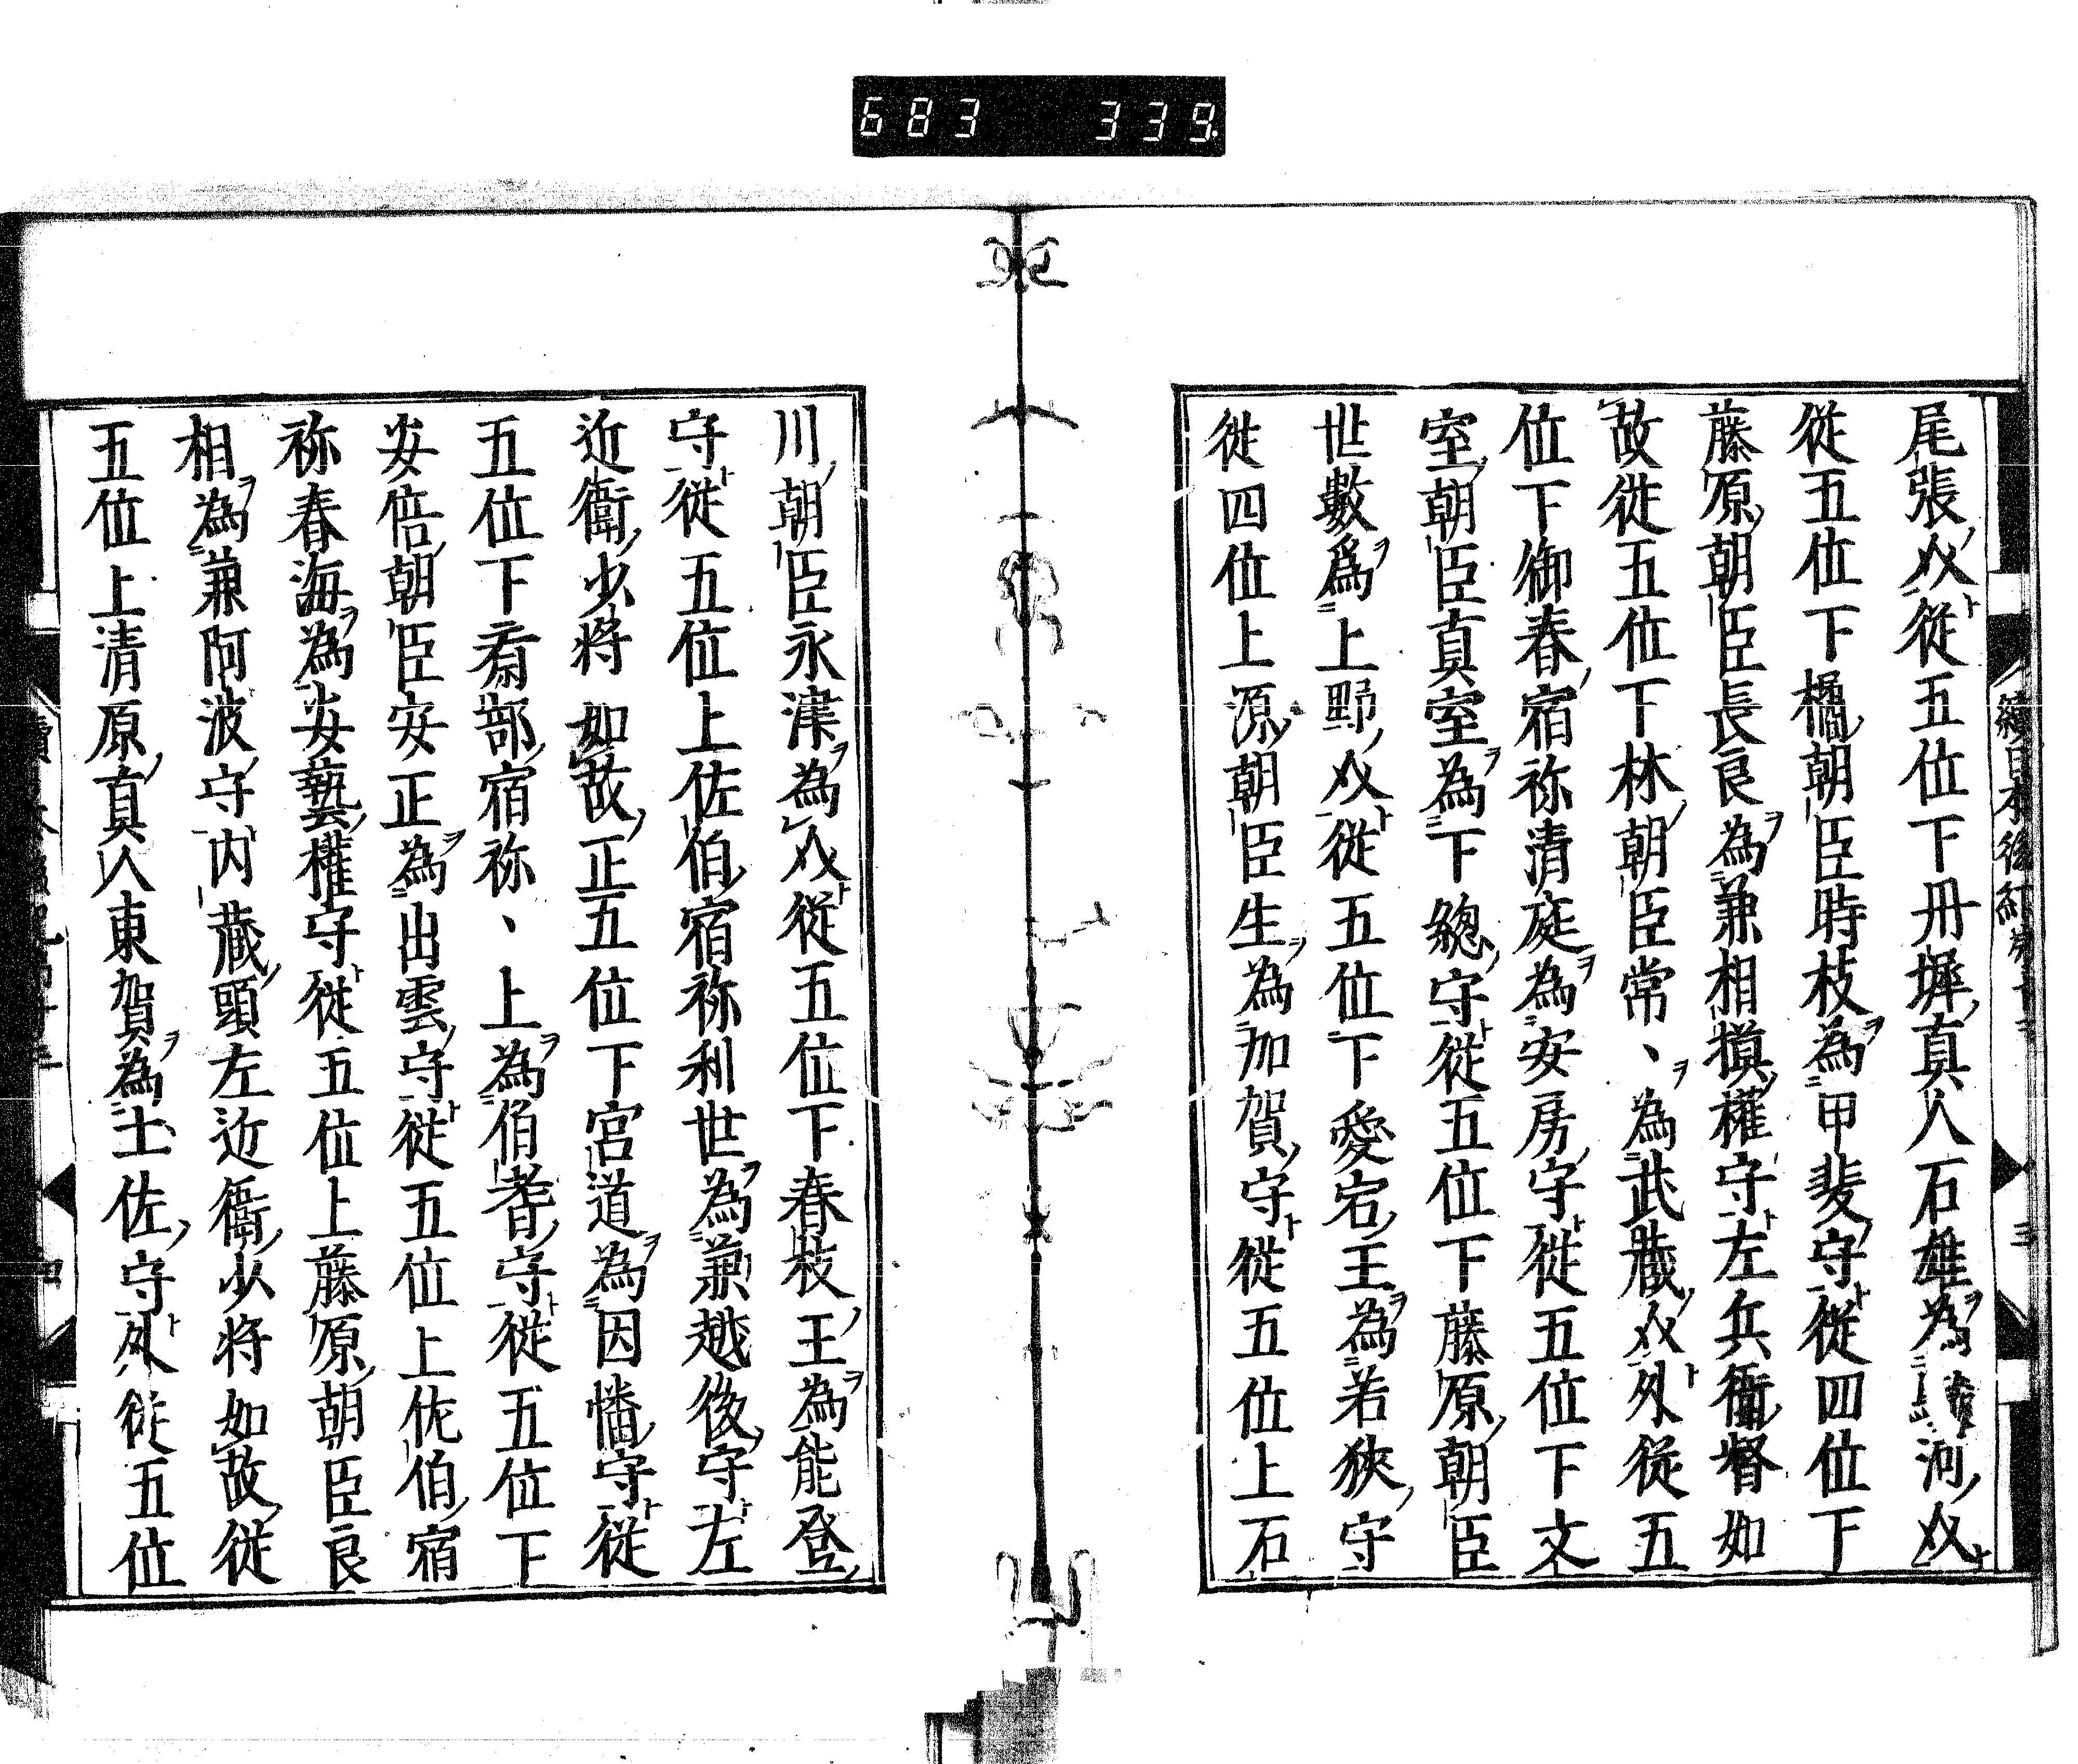 683 339
尾張、从從五位下丹墀真人石雄為駿河、从
從五位下橘朝臣時枝為甲斐守從四位下
藤原朝臣長良為兼相摸權守左兵衞督如
故從五位下林朝臣常、為武藏从外從五
位下御春宿祢清庭為安房守從五位下文
室朝臣真室為下總守從五位下藤原朝臣
世數爲上野从從五位下愛宕王為若狹守
從四位上源朝臣生為加賀守從五位上石
川朝臣永津為从從五位下春枝王為能登
守從五位上佐伯宿祢利世為兼越後守左
近衞少將如故正五位下宮道為因幡守從
五位下齋部宿祢、上為伯耆守從五位下
安倍朝臣安正為出雲守從五位上佐伯宿
祢春海為安藝權守從五位上藤原朝臣良
相為兼阿波守内藏頭左近衞少将如故從
五位上清原真人東賀為土佐守外從五位
續日本後紀